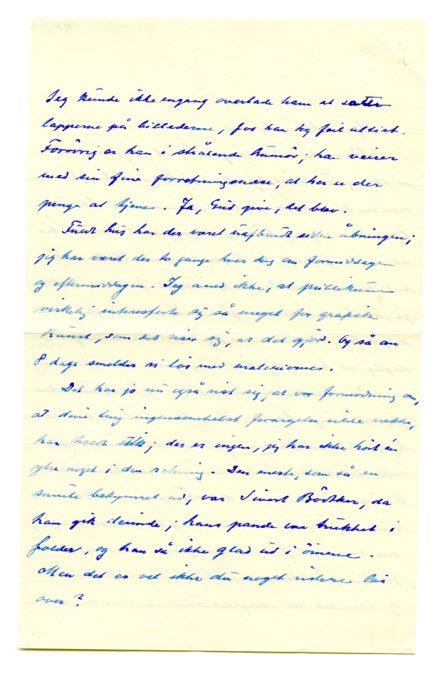 Jeg kunde ikke engang overlade ham at sætte
lapperne på billederne, for han tog feil altid.
Forövrig er han i strålende humör; han veirer
med sin fine forretningsnese, at her er der
penge at tjene. Ja, Gud give, det blev.
Fuldt hus har der været uafbrudt siden åbningen;
jeg har været der to gange hver dag om formiddagen
og eftermiddagen. Jeg aned ikke, at publikum
virkelig interesserte sig så meget for grafisk
kunst, som det viser sig, at det gjör. Og så om
8 dage smelder vi lös med malerierne.
Det har jo nu også vist sig, at vor formodning om,
at dine ting ingensomhelst forargelse vilde vekke,
har holdt stik; der er ingen, jeg har ikke hört én
ytre noget i den retning. Den eneste, som så en
smule bekymret ud, var Sivert Bödtker, da
han gik derinde; hans pande var trukket i
folder, og han så ikke glad ud i öinene.
Men det er vel ikke du noget videre lei
over?